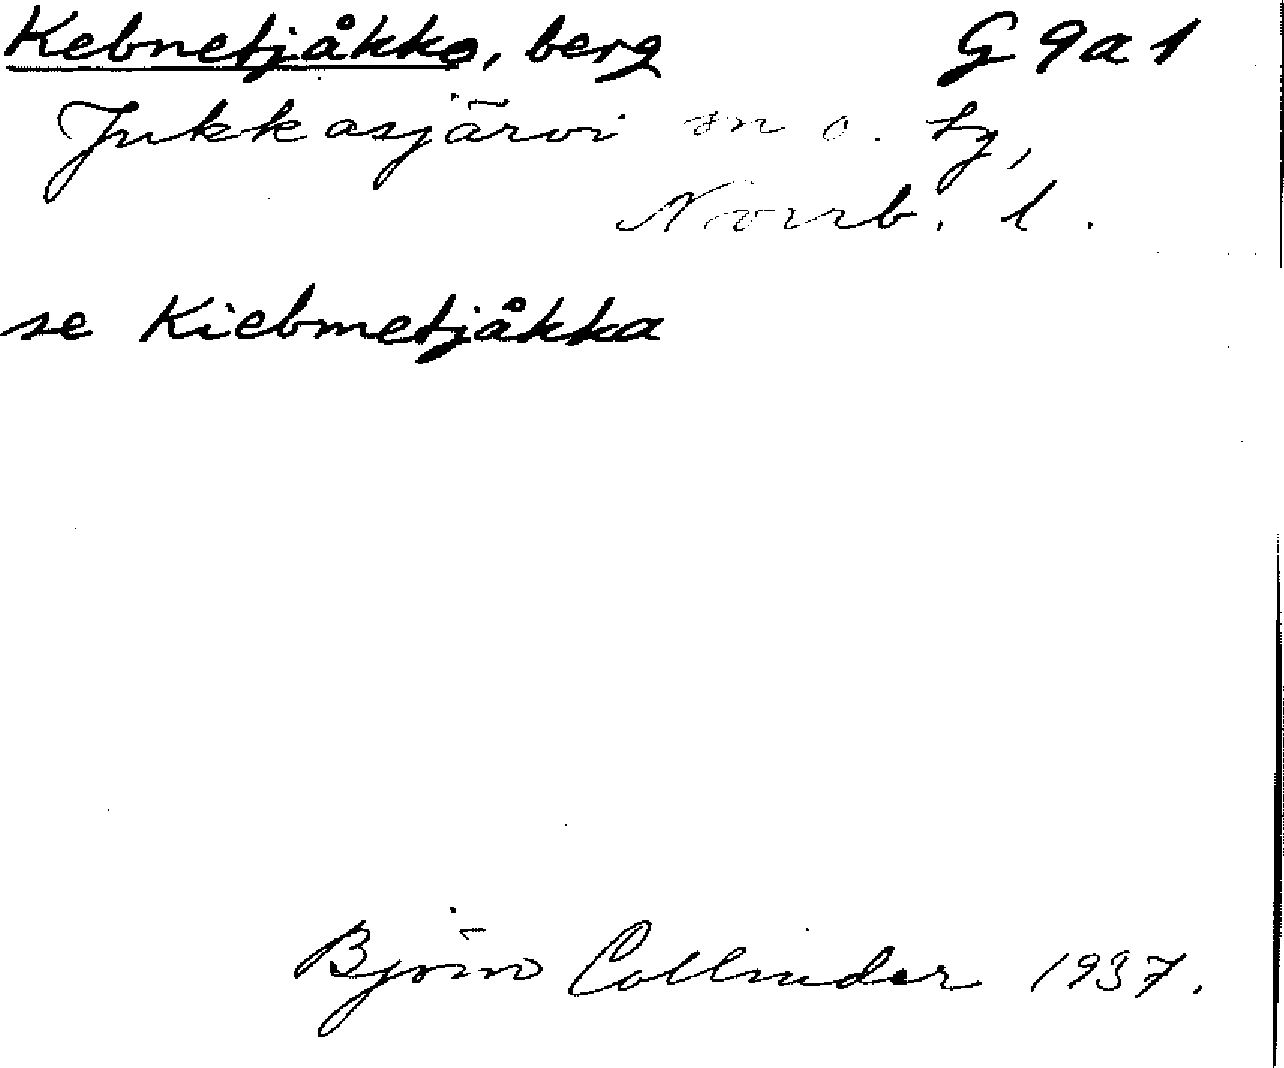 Kebnetjåkko, berg G 9a1
Jukkasjärvi sn o. tg,
Norrb. l.
se Kiebmetjåkka
Björn Collinder 1937.